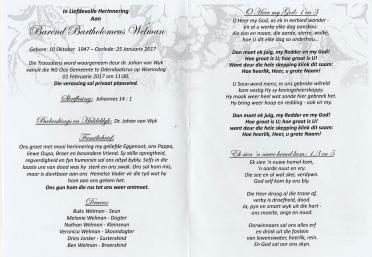 In Liefdevolle Herinnering
Aan
Barend Bartholomeus Welman
Gebore: 10 Oktober 1947 ~ Oorlede: 25 Januarie 2017
Die Troosdiens word waargeneem deur dr. Johan van Wyk
vanuit die NG Oos Gemeente te Odendaalsrus op Woensdag
01 Februarie 2017 om 11:00.
Die verassing sal privaat plaasvind.
Skriflesing: Johannes 14 : 1
Predeskings en Huldeblyk: Dr. Johan van Wyk
Familiebrief:
Ons groet met hoar herinnering my geliefde Eggenoot, ons Pappa,
Eewe Oupa, Broer en besondere Vriend. Sy stille opregtheid,
regverdigheid en fyn humorsin sal ons altyd bybly. Selfs in die
laaste ure van dood was hy sterk en ons swak. Ons sal hom mis,
maar is dankbaar aan ons Hemelse Vader vir die tyd wat hy
hom aan ons geleen het.
Ons gun hom die rus tot ons weer ontmoet.
Draers:
Buks Welman - Seun
Melanie Welman - Dogter
Nathan Welman - Kleinseun
Veronica Welman - Skoondogter
Dries Jonker - Susterskind
Ben Welman - Broerskind
O Heer my God: 1 en 3
O Heer my God, as ek in eerbied wonder
en al u werke elke dag aanskou:
die son en maan, die aarde, sterre, wolke,
hoe U dit elke dag so onderhou...
Dan moet ek juig, my Redder en my God!
Hoe groot is U; hoe groot is U!
Want deur die hele skepping klink dit saam:
Hoe heerlik, Heer, u grote Naam!
U Seun word mens; in ons gebroke wêreld
kom vestig Hy sy koningsheerskappy.
Hy maak weer heel wat sonde hier gebreek het.
Hy bring weer hoop en redding - ook vir my.
Dan moet ek juig, my Redder en my God!
Hoe groot is U; hoe groot is U!
want deur die hele skepping klink dit saam:
Hoe heerlik, Heer, u grote Naam!
Ek sien 'n nuwe hemel kom: 1,3 en 5
Ek sien 'n nuwe hemel kom,
'n aarde nuut en vry.
Die see en al wat skei, verdwyn.
God self kom by ons bly.
Die Heer droog al die trane af,
verby is droefheid, dood.
Ja, pyn en smart wyk dié hart -
ons moeite, angs en nood.
Oorwinnaars sal ons alles erf
en drink uit dié fontein
van lewenswater, heerlik, rein.
En God sal oor ons skyn.